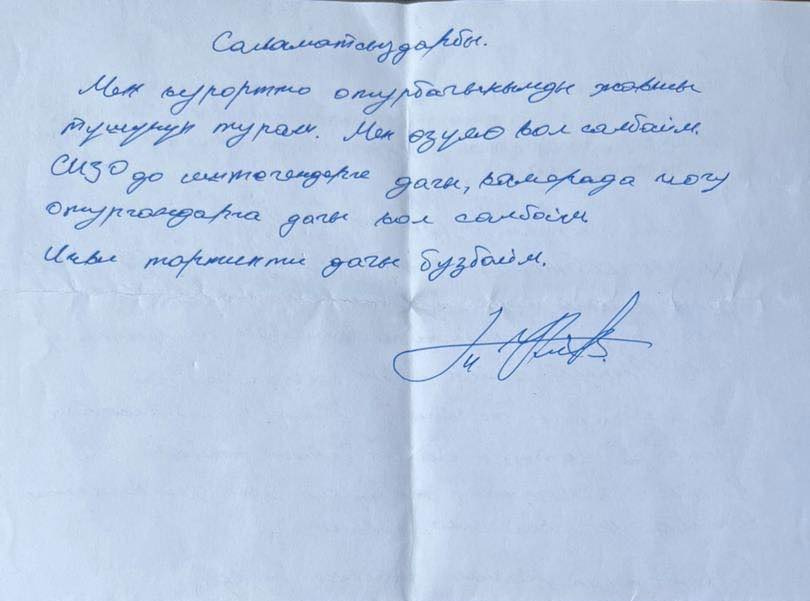 Саламатсыздарбы.
Мен курортто отурбаганымды жакшы
түшүнүп турам. Мен өзүмө кол салбайм.
СИЗО до иштегендерге дагы, камерада чогу
отургандарга дагы кол салбайм
Ички тартипти дагы бузбайм.